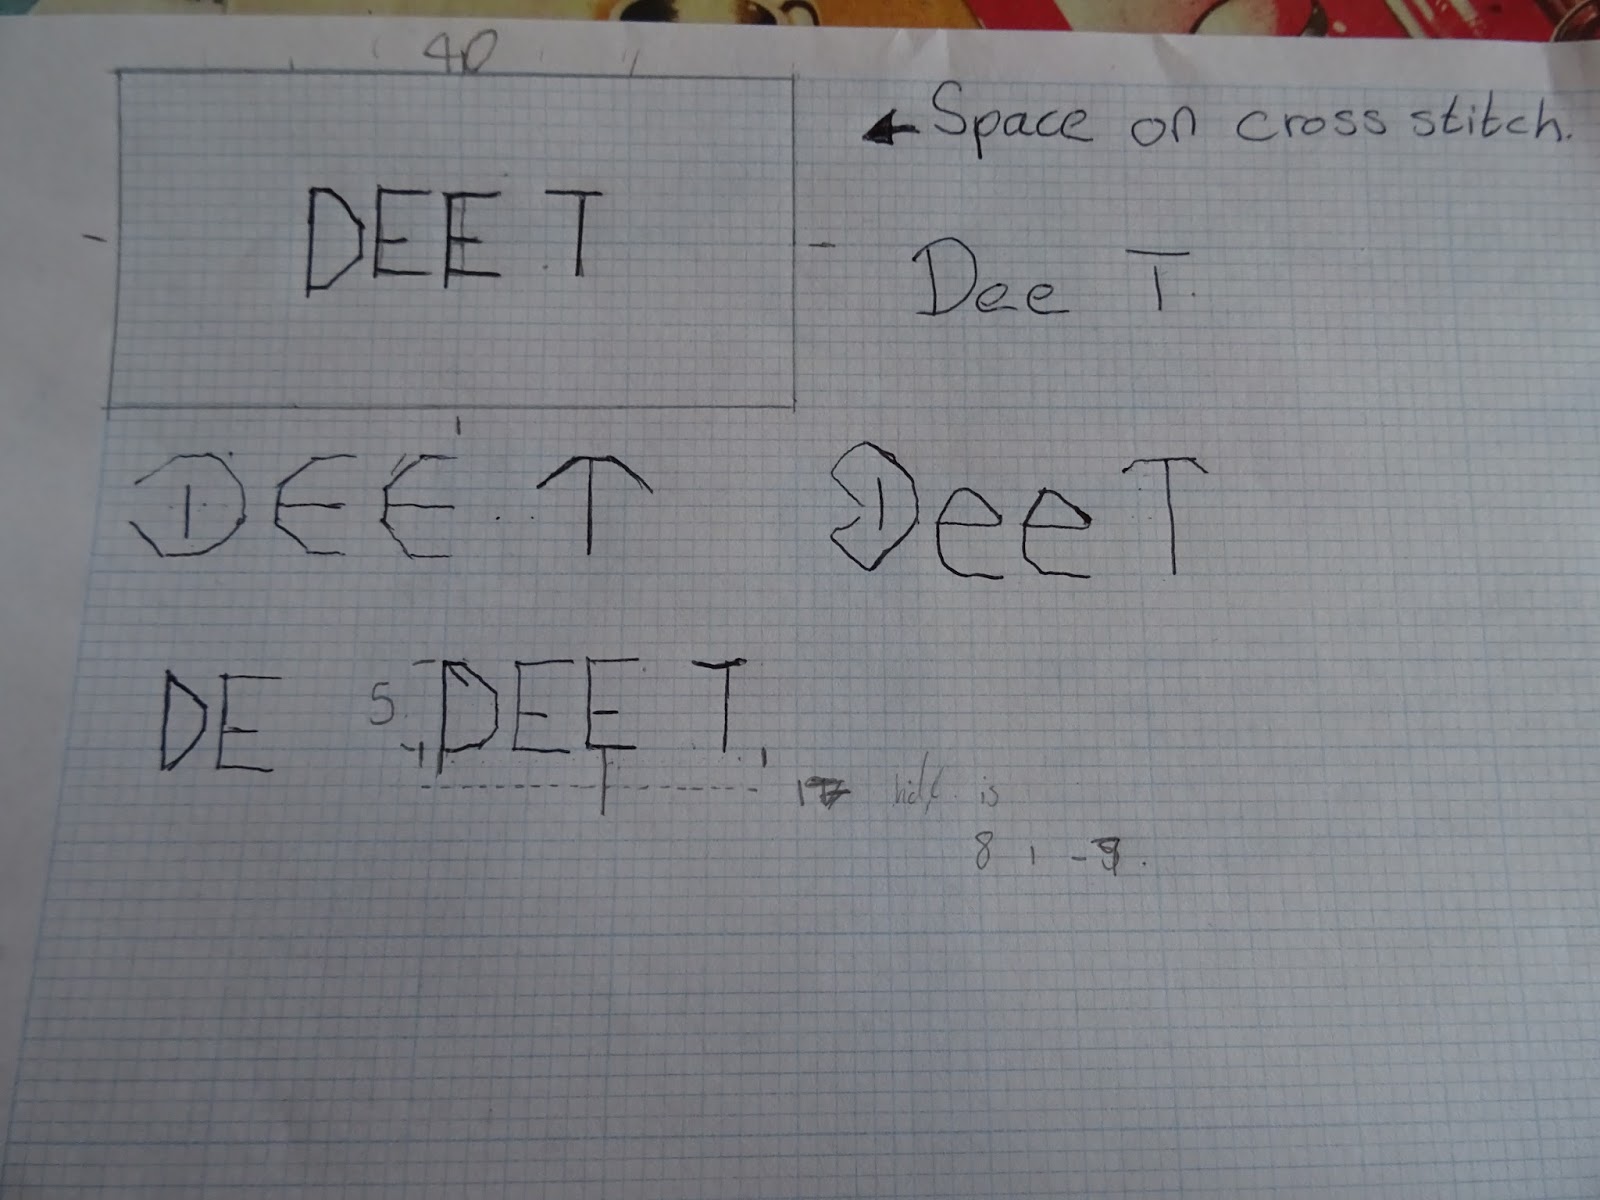 40
← Space on cross stitch.
DEE T
Dee T.
DEE T
DeeT
DE
5. DEE T
17 half is
8 , - 9.